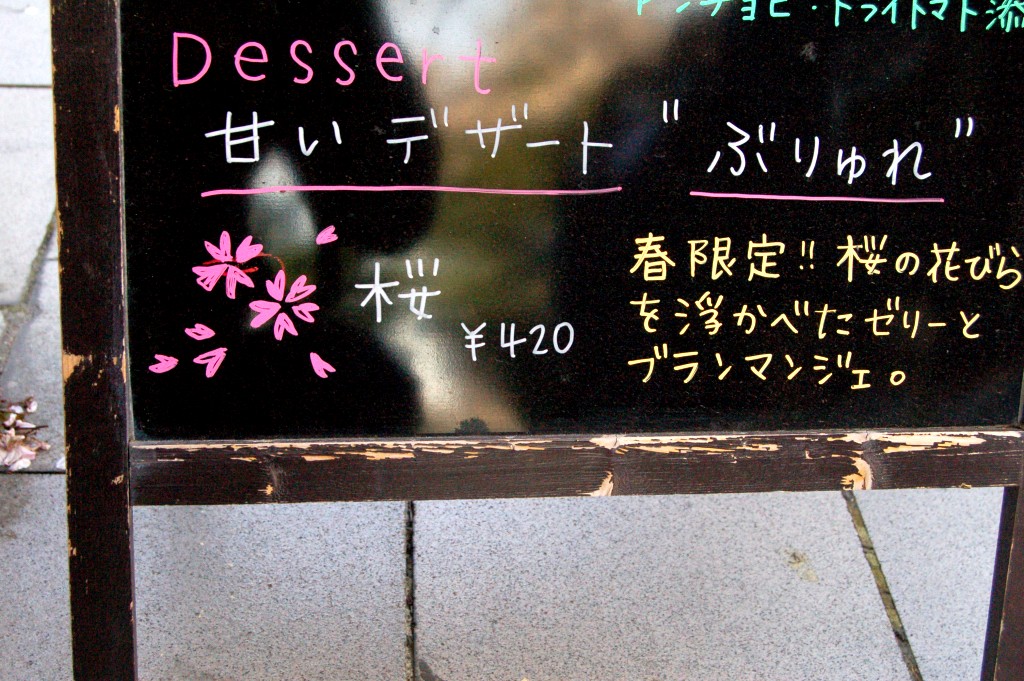 アンチョビ・ドライトマト添
Dessert
甘いデザート "ぶりゅれ"
桜
¥420
春限定!! 桜の花びら
を浮かべたゼリーと
ブランマンジェ。